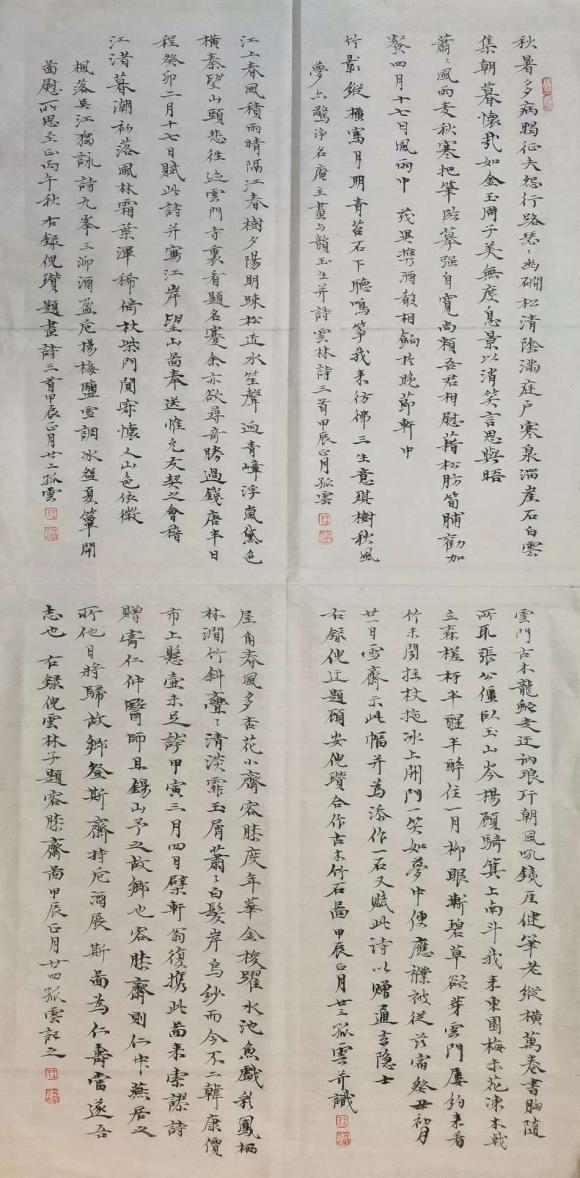 秋暑多病暍征夫怨行路瑟瑟幽磵松清陰滿庭戶寒泉溜崖石白雲
集朝暮懷哉如金玉周子美無度息景以消笑言思與晤
蕭蕭風雨麦秋寒把筆臨摹强自寬尚賴吾君相慰藉松肪筍脯勸加
餐四月十七日風雨中茂異携酒殽相餉於晚節軒中
竹影縱橫寫月明青苔石下聽鳴箏我来彷彿三生意琪樹秋風
夢亦驚淨名庵主畫与韻玉生并詩雲林詩三首甲辰正月孤雲
江上春風積雨晴隔江春樹夕陽明疎松近水笙聲迥青嶂浮嵐黛色
橫秦望山頭悲往迹雲門寺裏看題名蹇余亦欲尋奇勝過錢唐半日
程癸卯二月十七日賦此詩并寫江岸望山啚奉送惟允友契之會稽
江渚暮潮初落風林霜葉渾稀倚杖柴門闃寂懷人山色依微
楓落吴江獨詠詩九峯三泖酒盈巵楊梅鹽雪調冰盌夏簟開
啚慰所思至正丙午秋右録倪瓚題畫詩三首甲辰正月廿二孤雲
雲門古木龍蛇走迂訥琅玕朝風吼鐵崖健筆老縱橫萬卷書胸隨
所取張公僵臥玉山岑楊顧騎箕上南斗我来東園梅未花凍木戟
立森槎枒半醒半醉住一月柳眼漸碧草欲芽雲門屢約来看
竹未閒拄杖拖冰上開門一笑如夢中便應襆被從茲宿癸丑初月
廿一日雪齋示此幅并為添作一石又賦此詩以贈通玄隐士
右録倪迂題顧安倪瓚合作古木竹石啚甲辰正月廿三孤雲并識
屋角春風多杏花小齋容膝度年華金梭躍水池魚戲彩鳳栖
林澗竹斜亹亹清淡霏玉屑蕭蕭白髮岸烏紗而今不二韓康價
市上懸壺未足誇甲寅三月四日檗軒翁復携此啚来索謬詩
贈寄仁仲醫師且錫山予之故鄉也容膝齋則仁仲燕居之
所他日將歸故鄉登斯齋持巵酒展斯啚為仁壽當遂吾
志也右録倪雲林子題容膝齋啚甲辰正月廿四孤雲記之